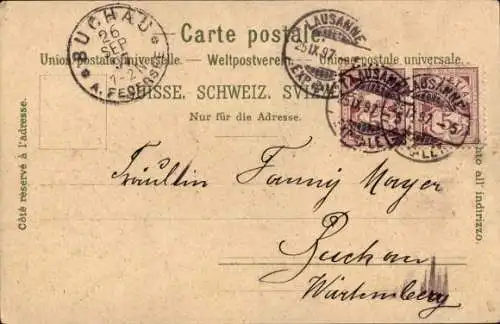 Carte postale.
Union postale universelle. – Weltpostverein. – Unione postale universale.
SUISSE. SCHWEIZ. SVIZ
Nur für die Adresse.
Côté réservé à l'adresse.
BUCHAU
26
SEP
A. FEDERSEE
LAUSANNE
25.IX.97
LAUSANNE
LAUSANNE
Fräulein Fanny Mayer
Buchau
Würtemberg
all' indirizzo.